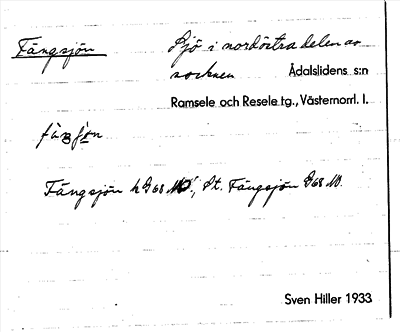 Fängsjön Sjö i nordöstra delen av
socknen Ådalslidens s:n
Ramsele och Resele tg., Västernorrl. l.
Fängsjön h G 68 NO; St. Fängsjön G 68 NO.
Sven Hiller 1933